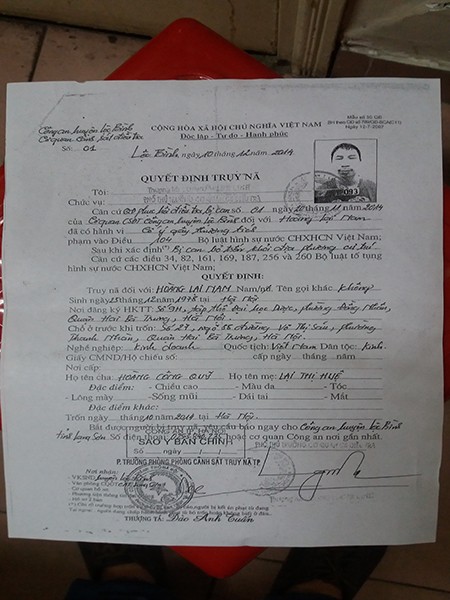 Công an huyện Lộc Bình
Cơ quan Cảnh sát điều tra
Số: 01
CỘNG HÒA XÃ HỘI CHỦ NGHĨA VIỆT NAM
Độc lập - Tự do - Hạnh phúc
Lộc Bình, ngày 10 tháng 12 năm 2014
093
QUYẾT ĐỊNH TRUY NÃ
Tôi:
Chức vụ:
Căn cứ QĐ phục hồi điều tra bị can số 01 ngày 10/11/2014
của Cơ quan CSĐT Công an huyện Lộc Bình đối với Hoàng Lại Nam
đã có hành vi Cố ý gây thương tích
phạm vào Điều 104 Bộ luật hình sự nước CHXHCN Việt Nam;
Sau khi xác định bị can bỏ trốn khỏi địa phương cư trú
Căn cứ các điều 34, 82, 161, 169, 187, 256 và 260 Bộ luật tố tụng
hình sự nước CHXHCN Việt Nam;
QUYẾT ĐỊNH:
Truy nã đối với: HOÀNG LẠI NAM Nam/nữ. Tên gọi khác: Không
Sinh ngày 25 tháng 12 năm 1978 tại Hà Nội
Nơi đăng ký HKTT: Số 9H, tập thể Đại học Dược, phường Đồng Nhân,
Quận Hai Bà Trưng, Hà Nội.
Chỗ ở trước khi trốn: Số 27, ngõ 55 đường Võ Thị Sáu, phường
Thanh Nhàn, Quận Hai Bà Trưng, Hà Nội.
Nghề nghiệp: Kinh doanh Quốc tịch: Việt Nam Dân tộc: Kinh.
Giấy CMND/Hộ chiếu số: cấp ngày tháng năm
Nơi cấp:
Họ tên cha: HOÀNG CÔNG QUỸ Họ tên mẹ: LẠI THỊ HUỆ
Đặc điểm: - Chiều cao - Màu da - Tóc
- Lông mày - Sống mũi - Dái tai - Mắt
Đặc điểm khác:
Trốn ngày tháng 10 năm 2014 tại Hà Nội.
Bắt được người bị truy nã, yêu cầu báo ngay cho Công an huyện Lộc Bình
tỉnh Lạng Sơn Số điện thoại: hoặc cơ quan Công an nơi gần nhất.
SAO Y BẢN CHÍNH
Số ngày / /
P. TRƯỞNG PHÒNG PHÒNG CẢNH SÁT TRUY NÃ TP
Nơi nhận:
- VKSND huyện Lộc Bình
THƯỢNG TÁ: Đào Anh Tuấn